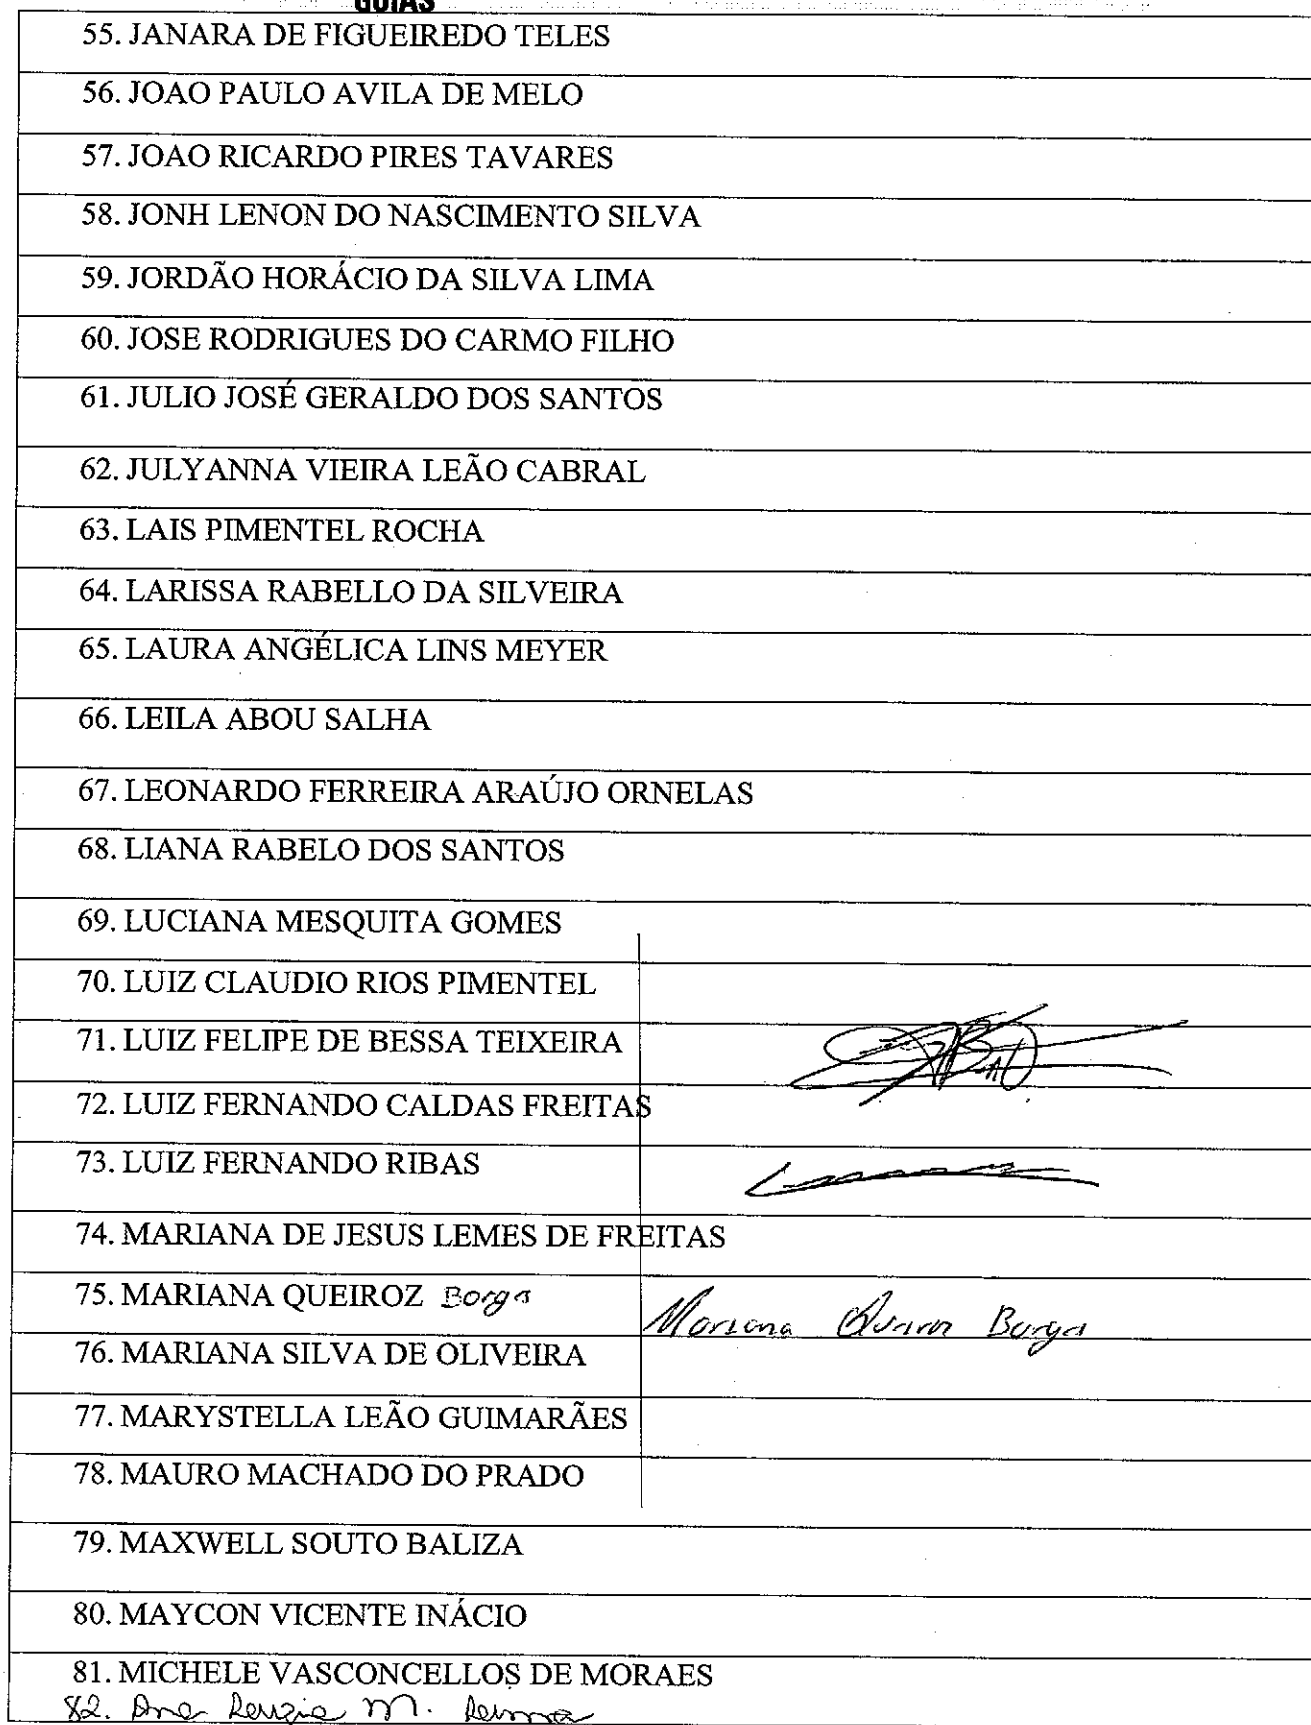 GOIÁS
55. JANARA DE FIGUEIREDO TELES
56. JOAO PAULO AVILA DE MELO
57. JOAO RICARDO PIRES TAVARES
58. JONH LENON DO NASCIMENTO SILVA
59. JORDÃO HORÁCIO DA SILVA LIMA
60. JOSE RODRIGUES DO CARMO FILHO
61. JULIO JOSÉ GERALDO DOS SANTOS
62. JULYANNA VIEIRA LEÃO CABRAL
63. LAIS PIMENTEL ROCHA
64. LARISSA RABELLO DA SILVEIRA
65. LAURA ANGÉLICA LINS MEYER
66. LEILA ABOU SALHA
67. LEONARDO FERREIRA ARAÚJO ORNELAS
68. LIANA RABELO DOS SANTOS
69. LUCIANA MESQUITA GOMES
70. LUIZ CLAUDIO RIOS PIMENTEL
71. LUIZ FELIPE DE BESSA TEIXEIRA
72. LUIZ FERNANDO CALDAS FREITAS
73. LUIZ FERNANDO RIBAS
74. MARIANA DE JESUS LEMES DE FREITAS
75. MARIANA QUEIROZ Borges Mariana Borges
76. MARIANA SILVA DE OLIVEIRA
77. MARYSTELLA LEÃO GUIMARÃES
78. MAURO MACHADO DO PRADO
79. MAXWELL SOUTO BALIZA
80. MAYCON VICENTE INÁCIO
81. MICHELE VASCONCELLOS DE MORAES
82. Ana M.